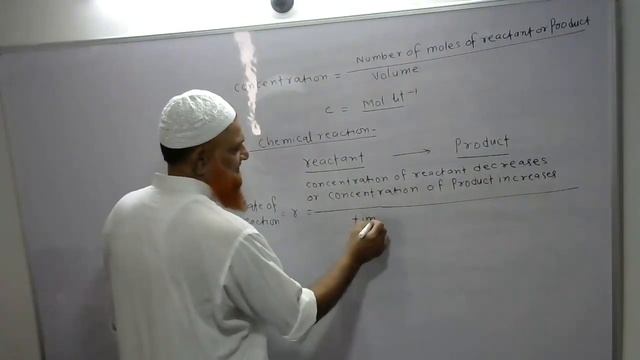 Concentration = Number of moles of reactant or Product
Volume
C = Mol lt⁻¹
Chemical reaction-
reactant → Product
concentration of reactant decreases
or concentration of Product increases
= r =
tim